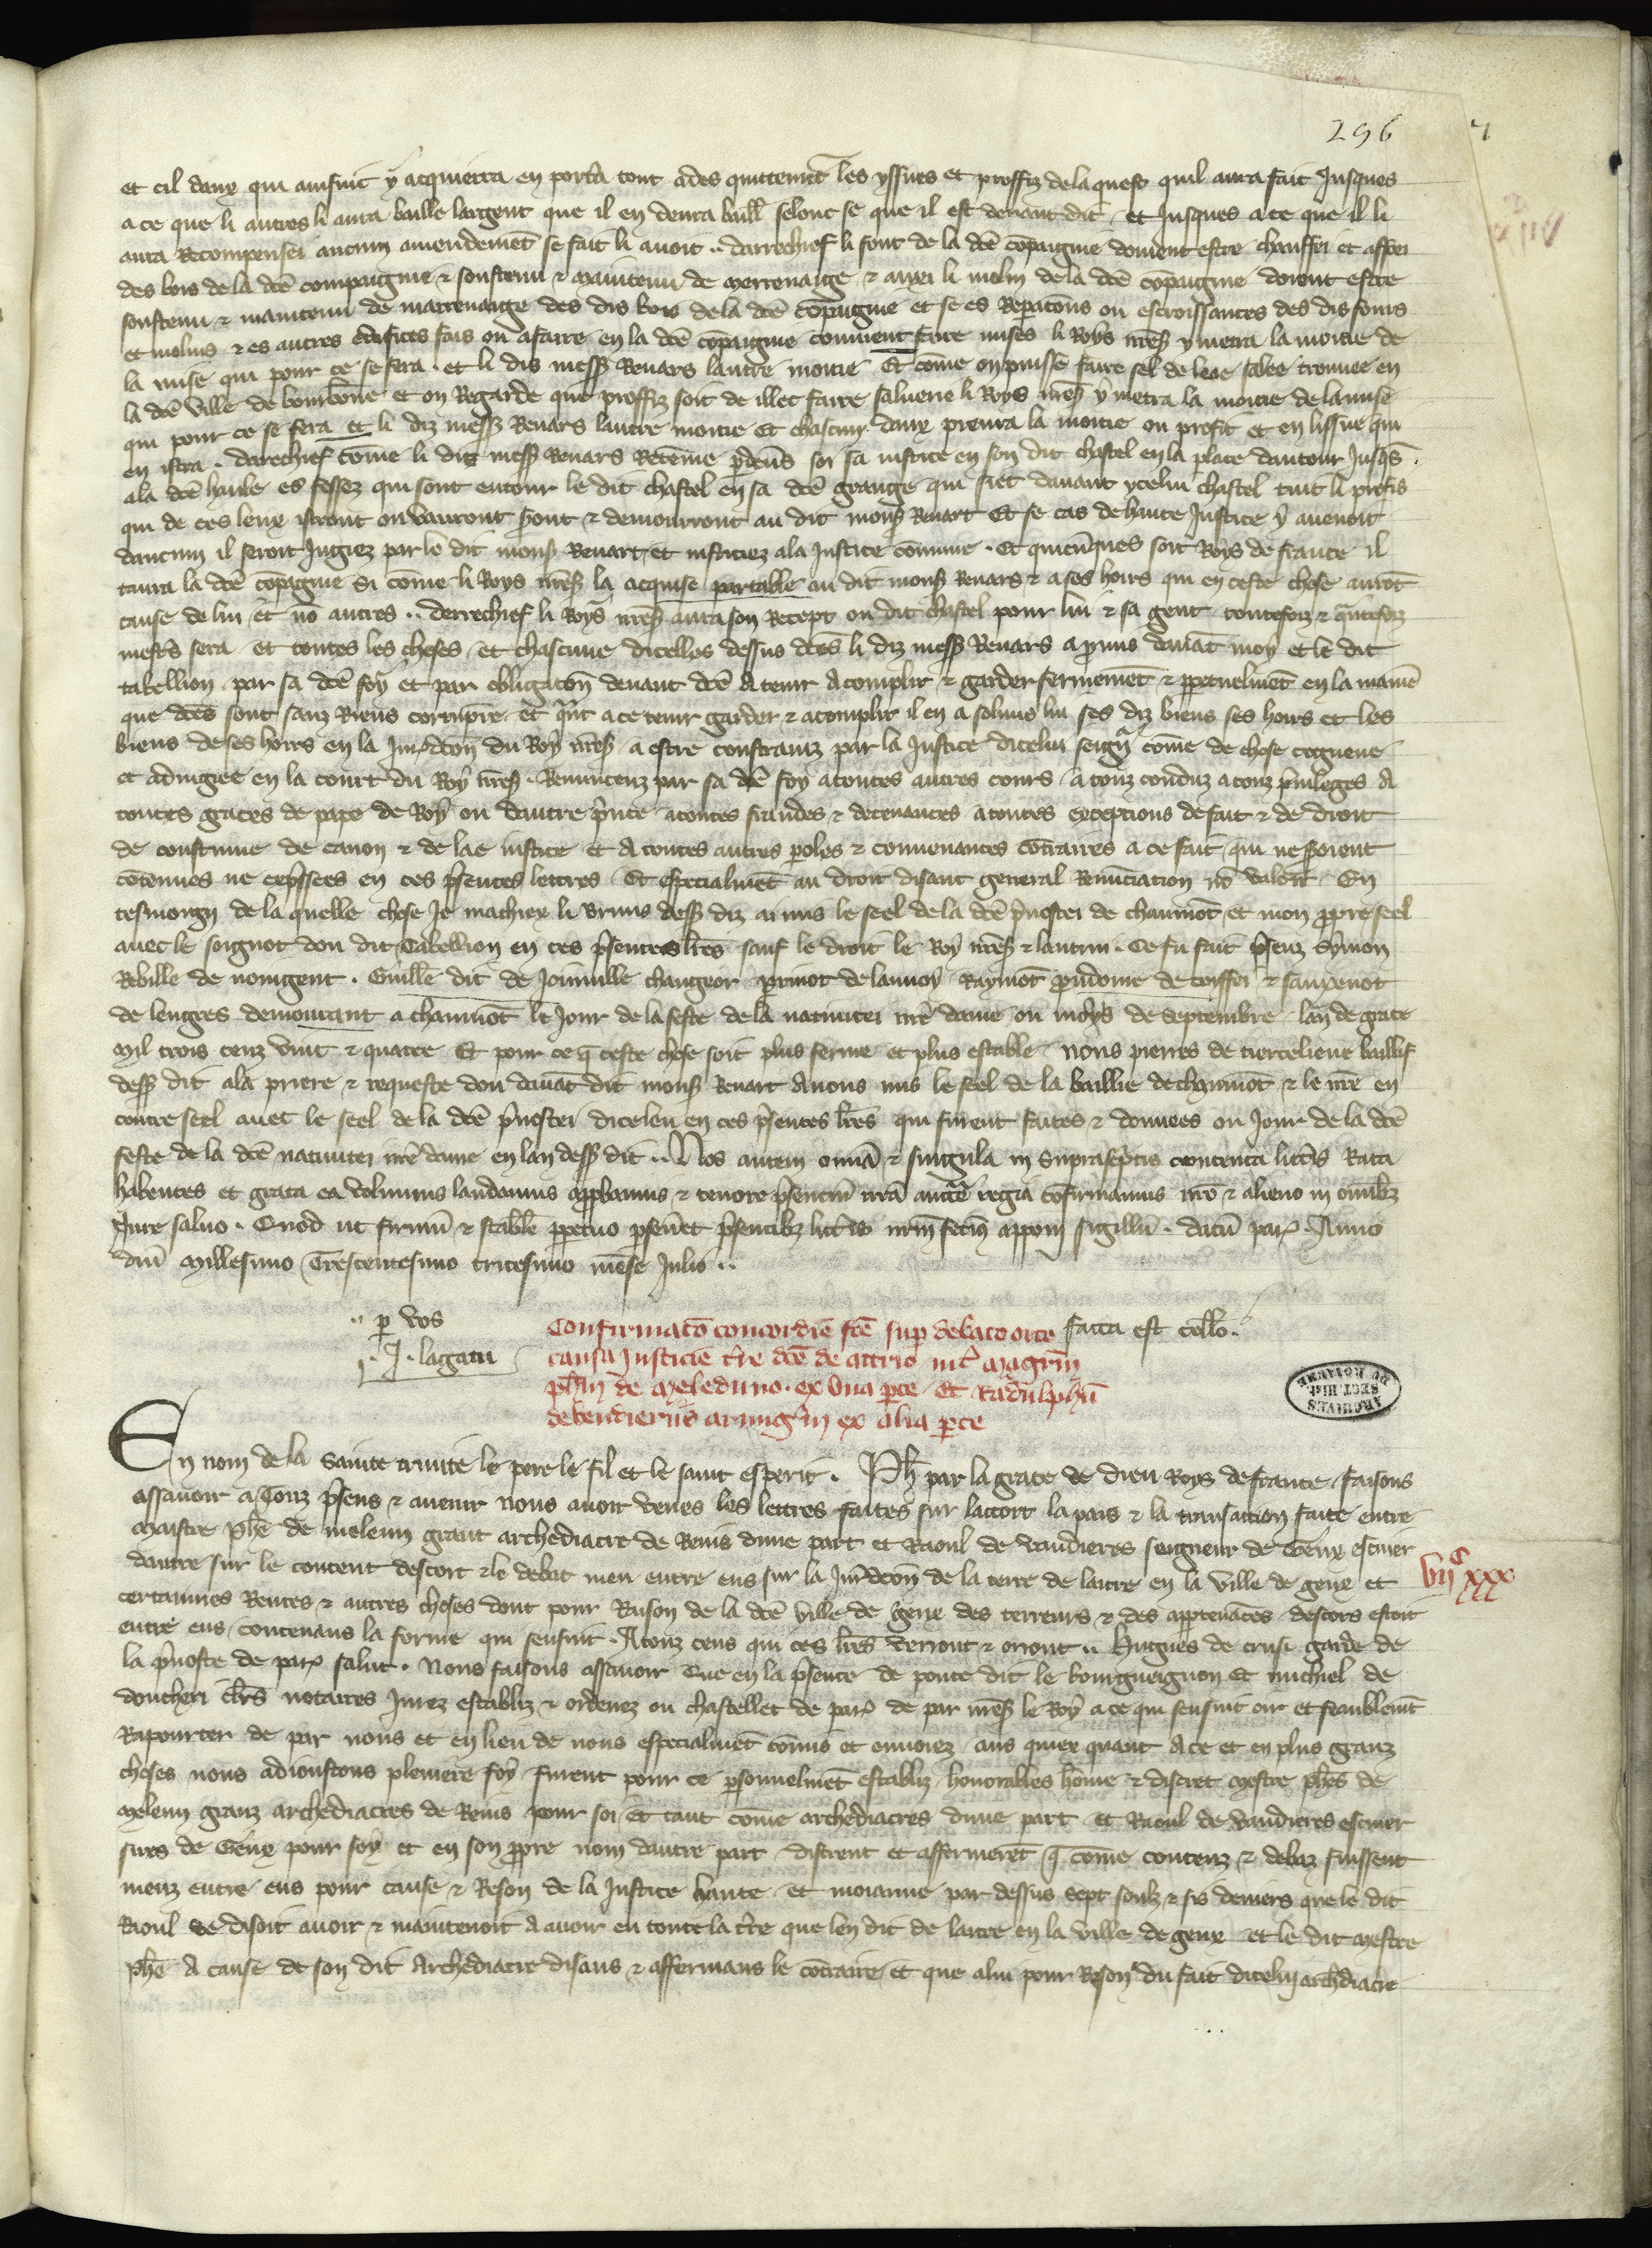 296
et cil daux qui ainsinc y acquierra en portā tout ades quittemēt les yssues et proffiz delaquest quil aura fait Jusques
a ce que li autres li aura baille largent que il en deura baill̄ selonc se que il est deuant dit / et Jusques a ce que il li
aura Recompensei aucun amendemēt se fait li auoit ·· darrechief li font de la dc̄e cōpaignie doiuent estre chauffei et affoei
des bois de la dc̄e compaignie & soustenu & maintenu de merrenaige & auxi li molin de la dc̄e cōpaignie doiuent estre
soustenu & maintenu de marrenaige des dis bois de la dc̄e cōpaignie et se es Repatōns ou escroissances des dis fours
et molins & es autres edefices fais ou a faire en la dc̄e cōpaignie conuient faire mises li Roys nr̄es y metra la moitie de
la mise qui pour ce se fera · et li dis mess̄ Renars lautre moitie Et cōme on puisse faire sel de leae salee trouuee en
la dc̄e ville de bourbōne et on Regarde que proffiz soit de illec faire saluerie li Roys nr̄es y metra la moitie de lamise
qui pour ce se fera et li diz mess̄ Renars lautre moitie Et chascuns daux penra la moitie ou profit et en lissue qui
en istra · darechief cōme li dis mess̄ Renars Retēme p̄deūs soi sa iustice en son dit chastel en la place dautour Jusqs̄
ala dc̄e haule es fossez qui sont entour le dit chastel en sa dc̄e grange qui siet dauant ycelui chastel tuit li profis
qui de ces leux istront ou vauront s̄ont & demourront au dit mons̄ Renart Et se cas de haute Justice y auenoit
daucun il seroit Jugiez par le dit mons̄ Renart et iusticiez ala Justice cōmune · Et quicūques soit Roys de france il
taura la dc̄e cōpaignie si cōme li Roys nr̄es la acquise partable au dit mons̄ Renars & a ses hoirs qui en ceste chose aurōt
cause de lui et nō autres ·· derrechief li Roys nr̄es aura son Recept ou dit chastel pour lui & sa gent toutefoiz & q̄ntefoiz
mest̄s sera et toutes les choses et chascune dicelles dessus dc̄es li diz mess̄ Renars a p̄mis dauāt moy et le dit
tabellion par sa dc̄e foy et par obligatōn deuant dc̄e A tenir Acomplir & garder fermemēt & p̄petuelmēt en la maniē
que dc̄es sont sanz Riens corrūpre et qn̄t a ce tenir garder & acomplir il en a soluns lui ses diz biens ses hoirs et les
biens de ses hoirs en la Jur̄dctōn du Roy nr̄es a estre constrainz par la Justice dicelui seign̄ cōme de chose cogneue
et adiugiee en la court du Roy nr̄es · Renuncenz par sa dc̄e foy atoutes autres cours · a touz conduz a touz p̄uileges A
toutes graces de pape de Roy ou dautre p̄nce atoutes fraudes & deceuances atoutes exceptions de fait & de droit
de coustume de canon & de lae iustice et A toutes autres p̄oles & conuenances cōtraires a ce fait qui ne s̄oient
cōtenues ne exp̄ssees en ces p̄sentes lettres · Et especialmēt au droit disant general Renūciation nō valoir · En
tesmoingn de la quelle chose Je mathiex li bruns dess̄ diz ai mis le seel de la dc̄e p̄uostei de chaumōt et mon p̄pre seel
auec le soignot dou dit Tabellion en ces p̄sentes lr̄es sauf le droit le Roy nr̄es & lautrui · Ce fu fait p̄senz Symon
Rebille de nongent · Guill̄e dit de Joinuille changeor p̄rinot de lannoy Raymōt p̄udome de coiffei & sauxenot
de lengres demourant a chaumōt le Jour de la feste de la natiuitei nr̄e dame ou moys de septembre lan de grace
mil trois cenz vint & quatre Et pour ce q̄ ceste chose soit plus ferme et plus estable nous pierres de tierceliene baillif
dess̄ dit ala priere & requeste dou dauāt dit mons̄ Renart Auons mis le seel de la baillie de chaumōt & le nr̄e en
contre seel auec le seel de la dc̄e p̄uostei diceleu en ces p̄sentes lr̄es qui furent faites & donnees ou Jour de la dc̄e
feste de la dc̄e natiuitei nr̄e dame en lan dess̄ dit ·· Nos autem omīa & singula in suprasc̄ptis contenta litt̄is Rata
habentes et grata ea volumus laudamus app̄bamus & tenore p̄sentiū nr̄a auct̄te regia cōfirmamus nr̄o & alieno in omībz
Jure saluo · Quod ut firmū & stabile p̄petuo p̄seuēt p̄sentibz litt̄is nr̄m fecim̄ apponi sigillū · datū par̄ · Anno
dn̄i Millesimo Trescentesimo tricesimo mēse Julio ··
·· p̄ vos
·· J · lagatu
Confirmatō concordie fc̄e sup̄ debato orto facta est coll̄o ·
causa Justicie t̄re dc̄e de attrio int̄ magr̄m
ph̄m de Meleduno · ex vna p̄te Et Radulphū
de Vendieriis armiḡm ex alia p̄te
ARCHIVES
SECT. HIST.
DU ROYAUME
En nom de la sainte trinite le pere le fil et le saint esperit · Ph̄ par la grace de dieu Roys de france faisons
assauoir a Touz p̄sens & auenir nous auoir veues les lettres faites sur laccort la pais & la transaction faite entre
Maistre ph̄e de meleun grant archediacre de Reins dune part et Raoul de vandieres seigneur de Geux escuier
dautre sur le content descort & le debat meu entre eus sur la Jur̄dctōn de la terre de laitre en la ville de geux et
VIIc XXX
certainnes Rentes & autres choses dont pour Raison de la dc̄e ville de geux des terreurs & des app̄tenāces descors estoit
entre eus / contenans la forme qui sensuit · A touz ceus qui ces lr̄es verront & orront ·· Hugues de crusi garde de
la p̄uoste de par̄ salut · Nous faisons assauoir Que en la p̄sence de ponce dit le bourgueignon Et michiel de
doncheri cl̄ers notaires Jurez establiz & ordenez ou chastellet de par̄ de par nr̄es le Roy a ce qui sensuit oir et feaublemēt
Rapourter de par nous et en lieu de nous especialmēt cōmis et enuoiez aus quiex quant A ce et en plus granz
choses nous adioustons pleniere foy furent pour ce p̄sonnelmēt establiz honorables hōme & discret mestre ph̄es de
Meleun granz archediacres de Reins pour soi et tant cōme archediacres dune part et Raoul de vandieres escuier
sires de Geux pour soy et en son p̄pre nom dautre part distrent et affermerēt q̄ cōme contenz & debaz fuissent
meuz entre eus pour cause & Reson de la Justice haute et moianne par dessus sept soulz & sis deniers que le dit
Raoul se disoit auoir & maintenoit A auoir en toute la t̄re que len dit de laitre en la ville de geux et le dit mestre
ph̄e A cause de son dit Archediacre disans & affermans le cōtraire et que alui pour Reson du fait dicelui archediacre